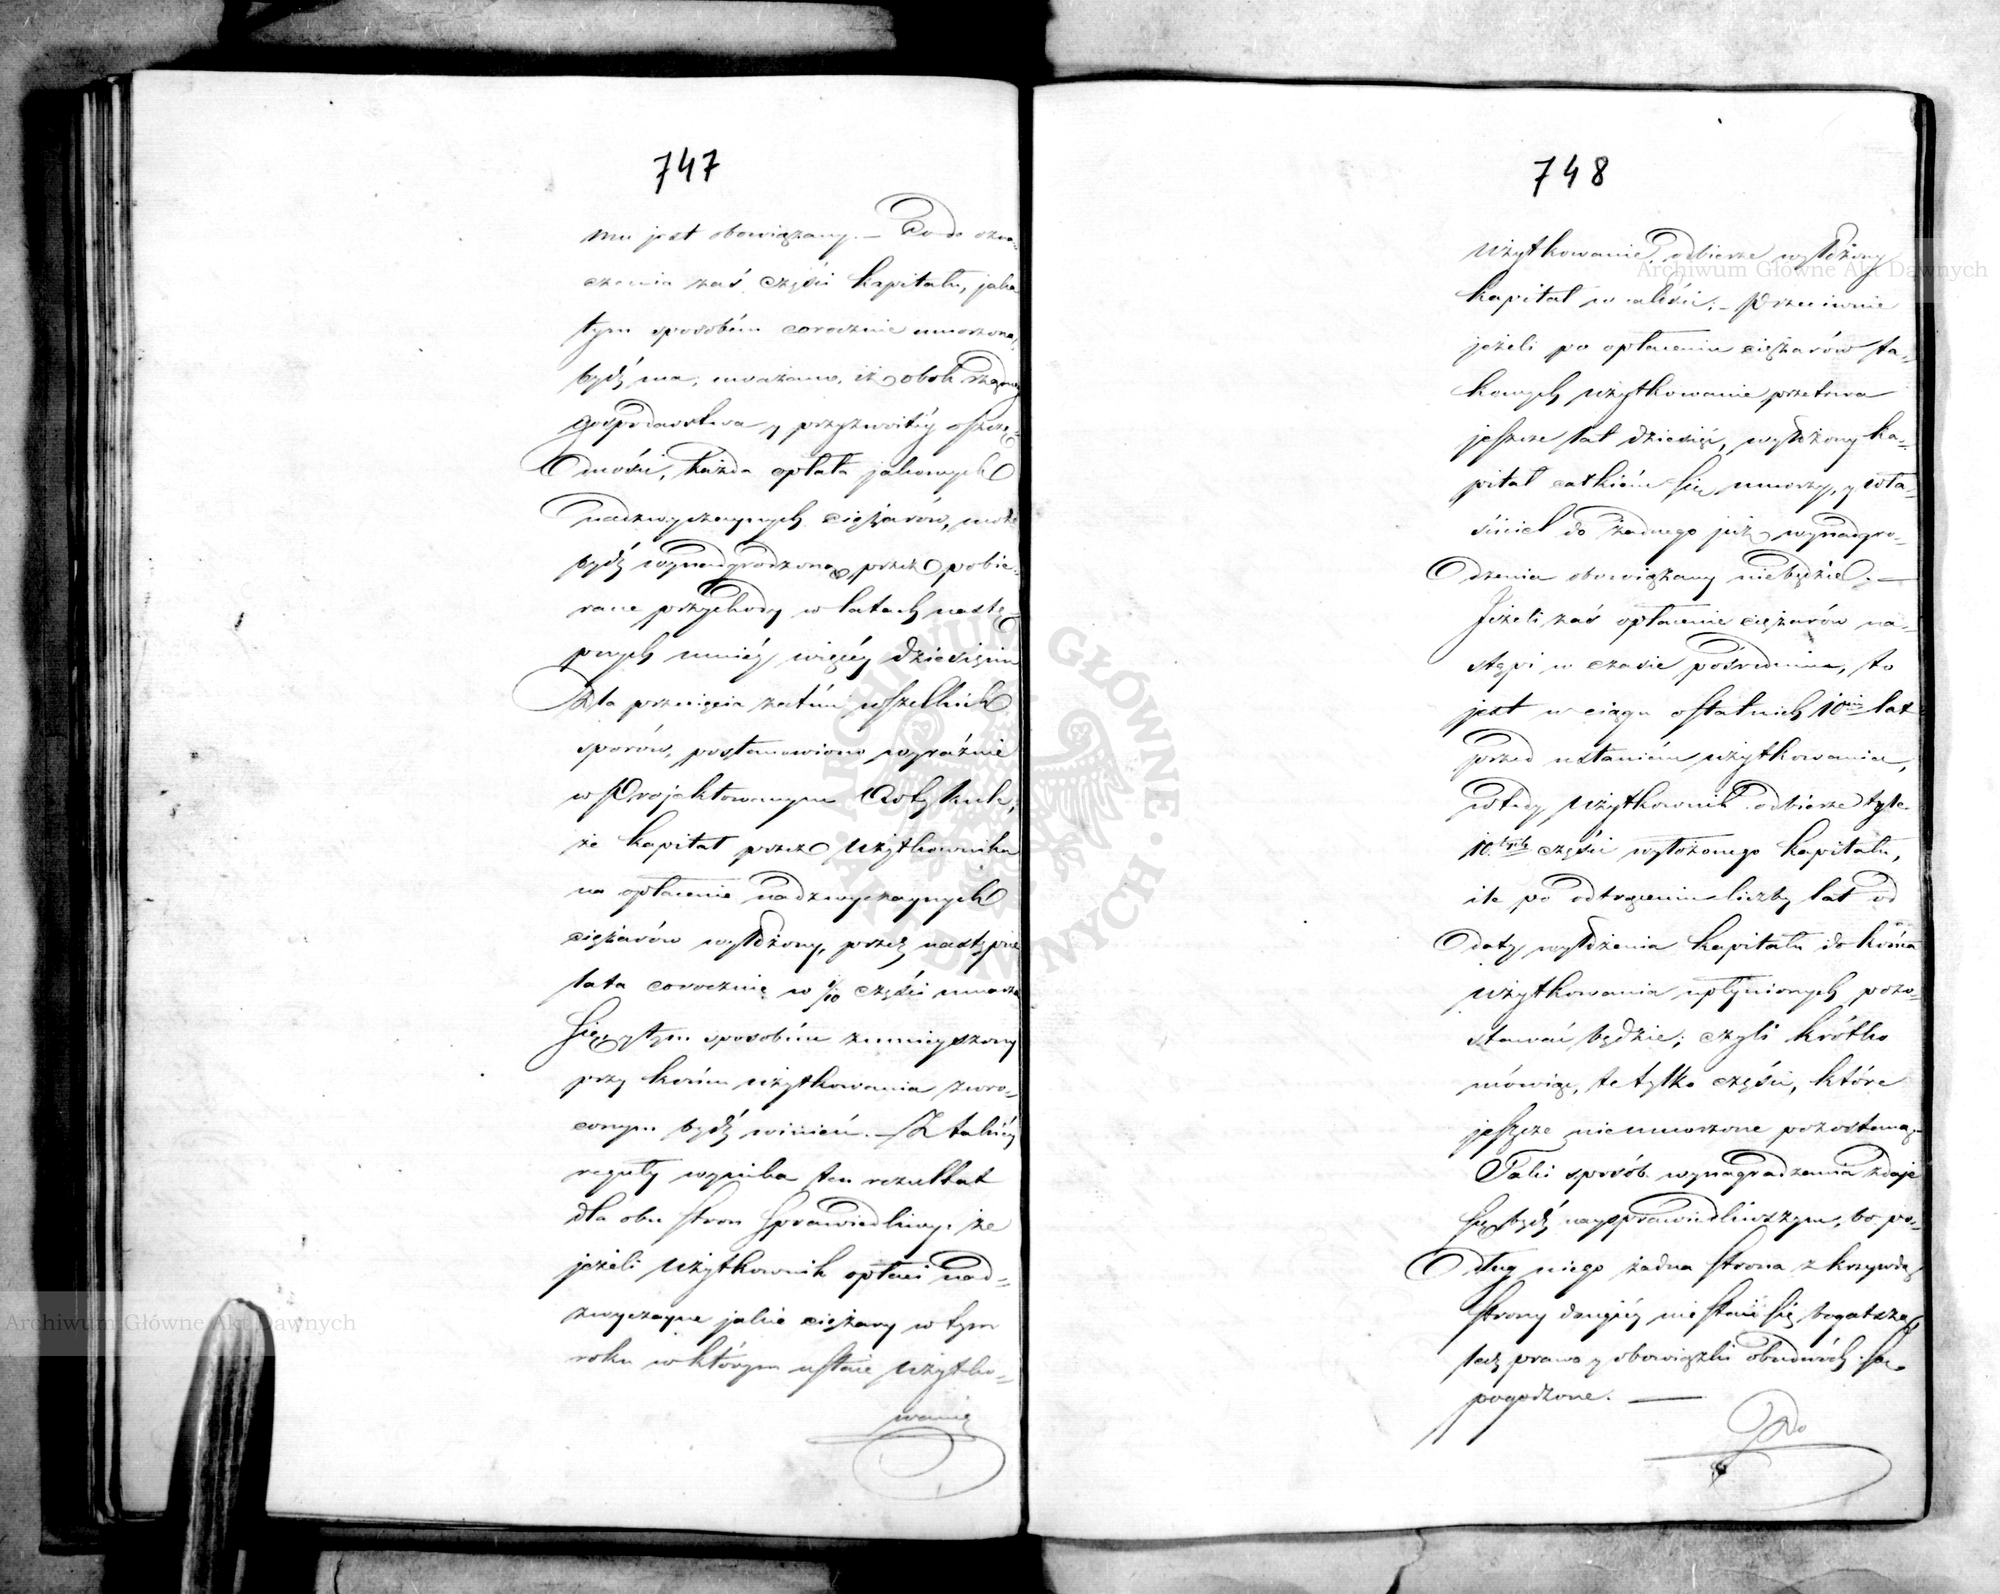 747
mu jest obowiązany. — Co do ozna-
czenia zaś części kapitału, jaka
tym sposobem corocznie umorzoną
bydź ma, uważano, iż obok rządnego
gospodarstwa y przyzwoitéy oszczę-
dności, każda opłata jakowych
nadzwyczaynych ciężarów, może
bydź wynadgrodzoną przez pobie-
rane przychody w latach nastę-
pnych mniéy więcéy dziesięciu
Dla przecięcia zatém wszelkich
sporów, postanowiono wyraźnie
w Projektowanym Artykule,
że kapitał przez użytkownika
na opłacenie nadzwyczaynych
ciężarów wyłożony, przez następne
lata corocznie w 1/10 części umarza
się, y tym sposobem zmnieyszony
przy końcu użytkowania zwró-
conym bydź winien. — Z takiéy
reguły wynika ten rezultat
dla obu stron sprawiedliwy, że
jeżeli użytkownik opłaci nad-
zwyczayne jakie ciężary w tym
roku w którym ustaie użytko-
wanie
748
użytkowanie, odbierze wyłożony
kapitał w całości. — Przeciwnie
jeżeli po opłaceniu ciężarów ta-
kowych użytkowanie przetrwa
jeszcze lat dziesięć, wyłożony ka-
pitał całkiem się umorzy, y wła-
ściciel do żadnego już wynadgro-
dzenia obowiązany niebędzie. —
Jeżeli zaś opłacenie ciężarów na-
stąpi w czasie pośrednim, to
jest w ciągu ostatnich 10ciu lat
przed ustaniem użytkowania,
wtedy użytkownik odbierze tyle
10tych części wyłożonego kapitału,
ile po odtrąceniu liczby lat od
daty wyłożenia kapitału do końca
użytkowania upłynionych pozo-
stawać będzie; czyli krótko
mówiąc, te tylko części, które
jeszcze nieumorzone pozostaną.
Taki sposób wynagradzania zdaje
się bydź naysprawiedliwszym, bo po-
dług niego żadna strona z krzywdą
strony drugiéy nie staie się bogatszą,
lecz prawa y obowiązki obudwóch są
pogodzone. —
Do
Archiwum Główne Akt Dawnych
Archiwum Główne Akt Dawnych
ARCHIWUM GŁÓWNE AKT DAWNYCH